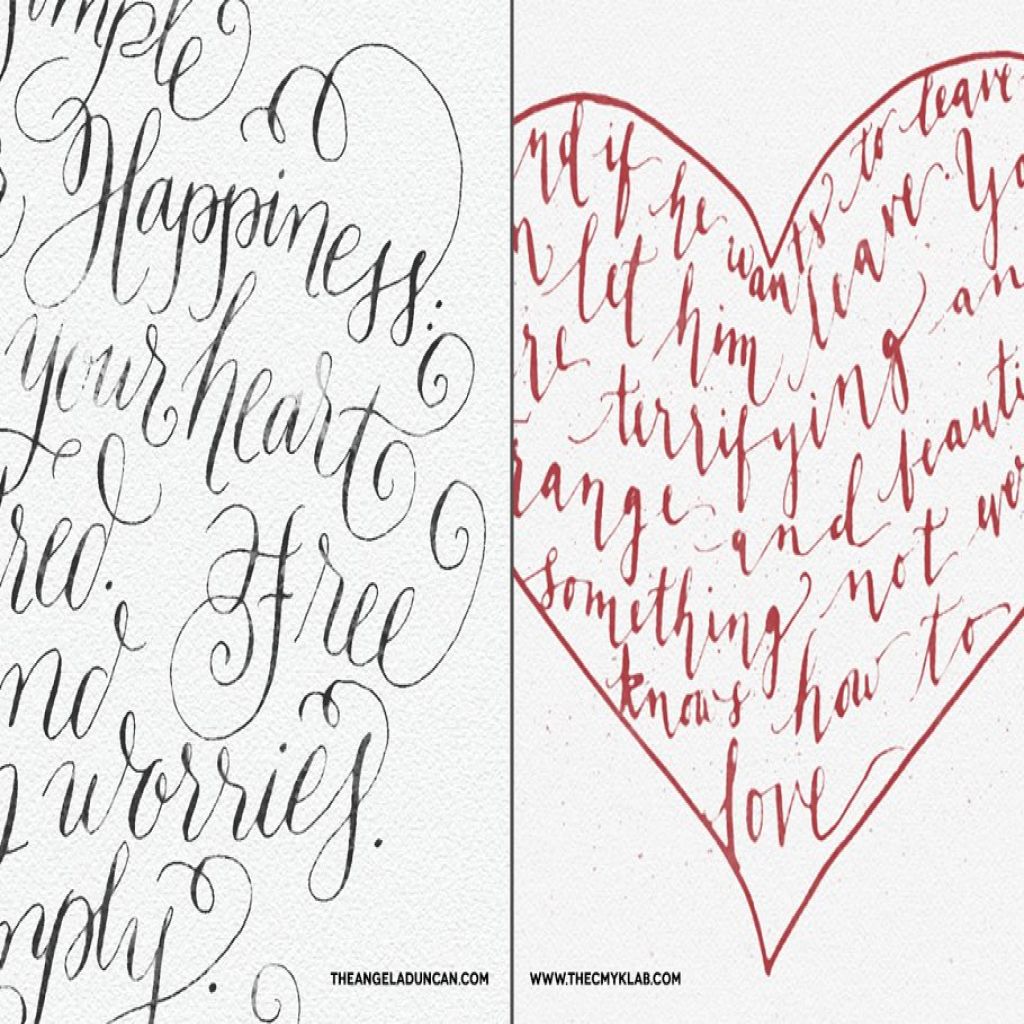 imple
Happiness:
your heart
red. Free
nd
worries.
mply.
THEANGELADUNCAN.COM
nd if he wants to leave
n let him leave. Yo
re terrifying an
range and beauti
something not ever
knows how to
love
WWW.THECMYKLAB.COM